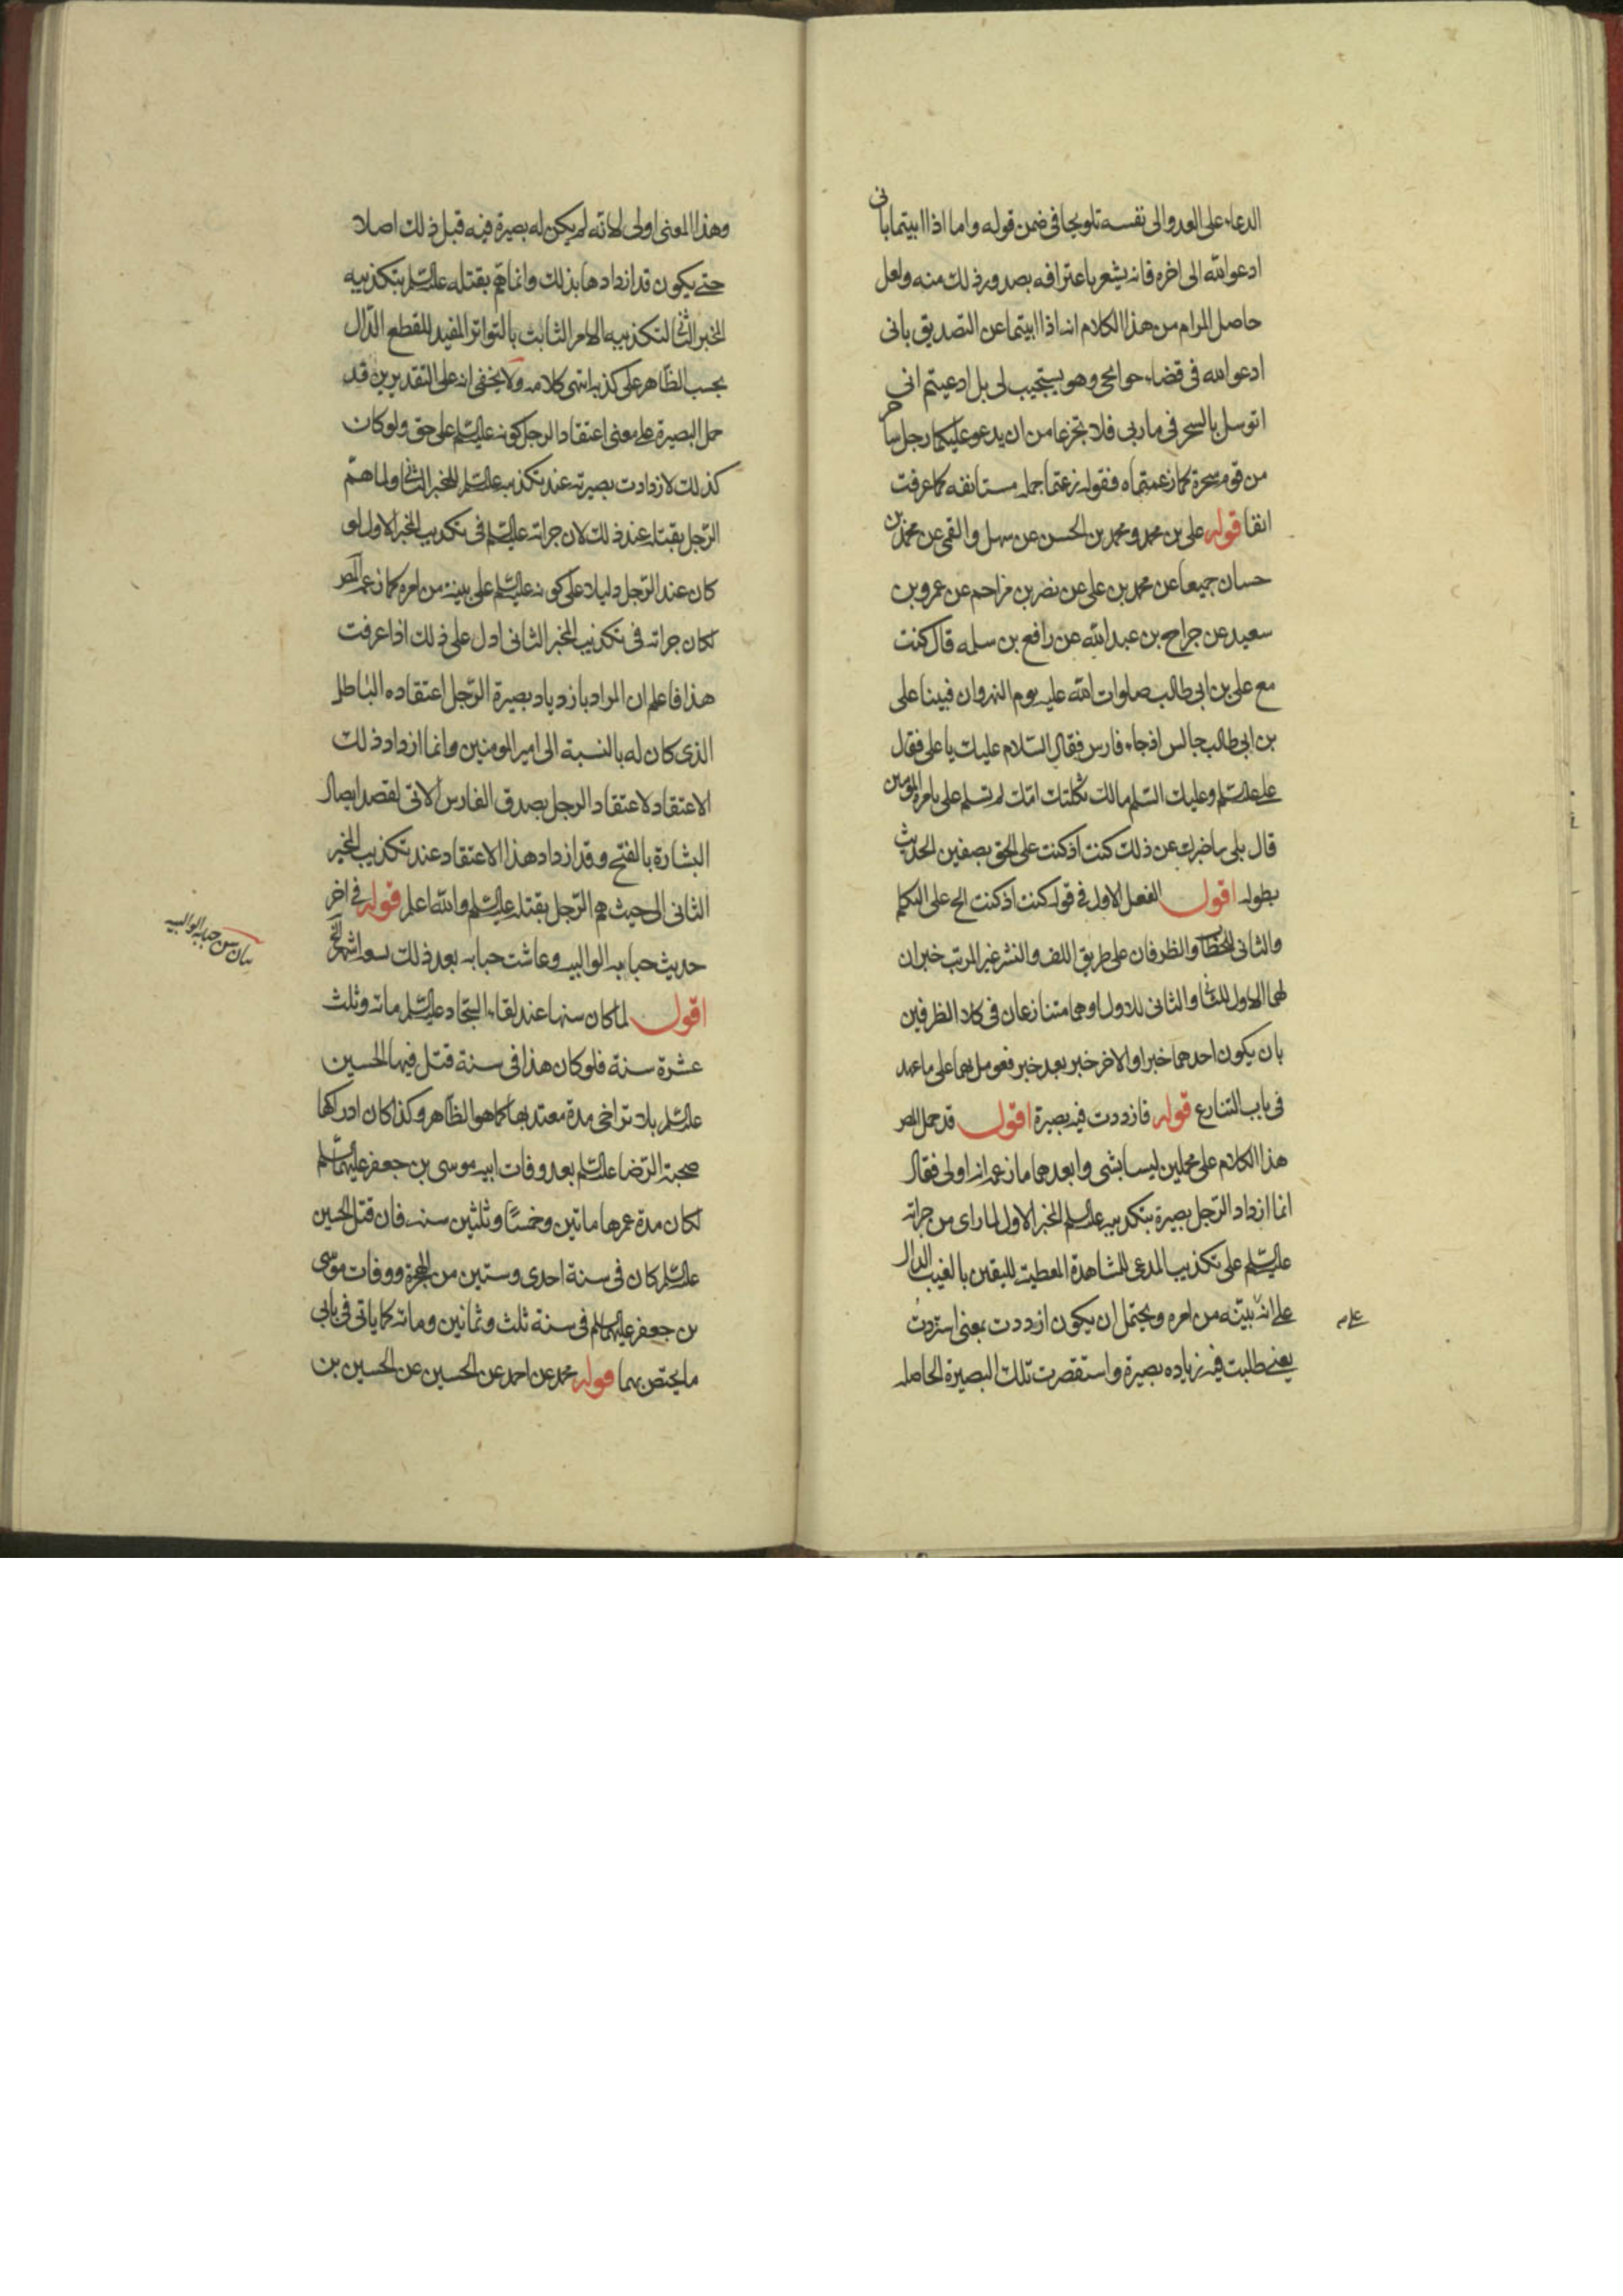 الدعاء على العدو الى نفسه تلويحا فى ضمن قوله واما اذا ابيتما بانى
ادعو الله الى اخره فانه يشعر باعترافه بصدور ذلك منه ولعل
حاصل المرام من هذا الكلام انه اذا ابيتما عن التصديق بانى
ادعو الله فى قضاء حوايجى وهو يستجيب لى بل ادعيتم انى
اتوسل بالسحر فى ماربى فلا تجزعا من ان يدعو عليكما رجل ساحر
من قوم سحرة كما زعمتماه فقوله زعمتما جمله مستانفه كما عرفت
انفا قوله على بن محمد ومحمد بن الحسن عن سهل والقمى عن محمد بن
حسان جميعا عن محمد بن على عن نصر بن مزاحم عن عمرو بن
سعيد عن جراح بن عبد الله عن رافع بن سلمه قال كنت
مع على بن ابى طالب صلوات الله عليه يوم النهروان فبينا على
بن ابى طالب جالس اذ جاء فارس فقال السلام عليك يا على فقال
على علیه السلم وعليك السلم مالك ثكلتك امك لم تسلم على بامرة المومنين
قال بلى ساخبرك عن ذلك كنت اذ كنت على الحق بصفين الحديث
بطوله اقول الفعل الاول فى قوله كنت اذ كنت الح على التكلم
والثانى للخطاب والظرفان على طريق اللف والنشر غير المرتب خبران
لهما الاول للثانی والثانى للاول او هما متنازعان فى كلا الظرفين
بان يكون احدهما خبرا والاخر خبر بعد خبر فعومل بهما على ما عهد
فى باب التنازع قوله فازددت فيه بصيرة اقول قد حمل المص
هذا الكلام على محملين ليسا بشى وابعدهما ما زعمه انه اولى فقال
انما ازداد الرجل بصيرة بتكذيبه علیه السلم المخبر الاول لما راى من جراته
علیه السلم على تكذيب المدعى للمشاهدة المعطية لليقين بالغيب الدال
على انه بينه من امره ويحتمل ان يكون ازددت بمعنى استزدت
يعنى طلبت فيه زياده بصيرة واستقصرت تلك البصيرة الحاصله
وهذا المعنى اولى لانه لم يكن له بصيرة فيه قبل ذلك اصلا
حتى يكون قد ازدادها بذلك وانما هم بقتله علیه السلم بتكذيبه
المخبر الثانی لتكذيبه الامر الثابت بالتواتر المفيد للقطع الدال
بحسب الظاهر على كذبه انتهى كلامه ولا يخفى انه على التقديرين قد
حمل البصيرة على معنى اعتقاد الرجل كونه علیه السلم على حق ولو كان
كذلك لازدادت بصيرته عند تكذيبه علیه السلم للمخبر الثانی ولما هم
الرجل بقتله عند ذلك لان جراته علیه السلم فى تكذيب المخبر الاول لو
كان عند الرجل دليلا على كونه علیه السلم على بينة من امره كما زعم المص
لكان جراته فى تكذيب المخبر الثانى ادل على ذلك اذا عرفت
هذا فاعلم ان المراد بازدياد بصيرة الرجل اعتقاده الباطل
الذى كان له بالنسبة الى امير المومنين وانما ازداد ذلك
الاعتقاد لاعتقاد الرجل بصدق الفارس الاتى لقصد ايصال
البشارة بالفتح وقد ازداد هذا الاعتقاد عند تكذيب المخبر
الثانى الى حيث هم الرجل بقتله علیه السلم والله اعلم قوله فى اخر
حديث حبابه الوالبيه وعاشت حبابه بعد ذلك تسعه اشهر الخ
اقول لما كان سنها عند لقاء السجاد علیه السلم مائه وثلث
عشرة سنة فلو كان هذا فى سنة قتل فيها الحسين
علیه السلم بلا تراخى مدة معتد بها كما هو الظاهر وكذا كان ادراكها
صحبة الرضا علیه السلم بعد وفات ابيه موسى بن جعفر عليهما السلم
لكان مدة عمرها ماتين وخمسًا وثلثين سنه فان قتل الحسين
علیه السلم كان فى سنة احدى وستين من الهجرة ووفات موسى
بن جعفر عليهما السلم فى سنة ثلث وثمانين ومائه كما ياتى فى بابى
ما يختص بهما قوله محمد عن احمد عن الحسين عن الحسين بن
بيان سن حبابه الوالبيه